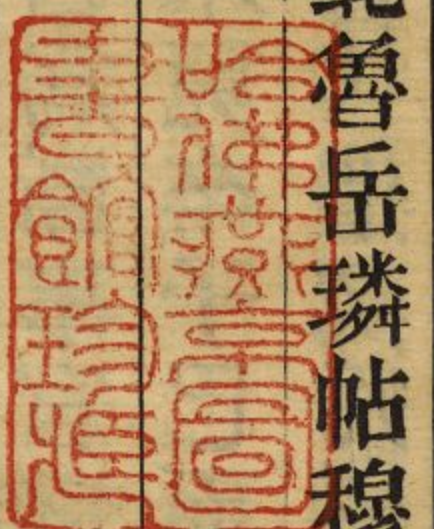 魯岳璘帖穆
哈佛燕京圖
書館珍藏